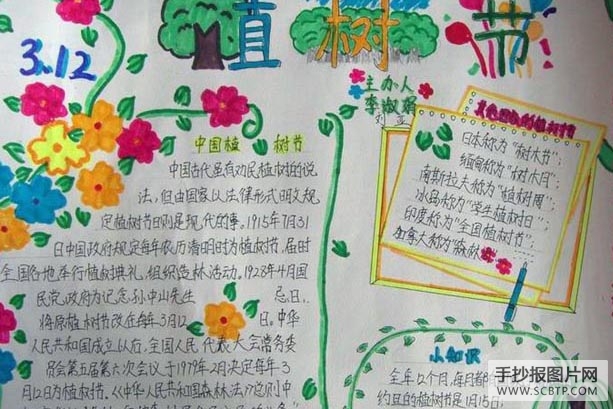 3.12 植树节
主办人
李淑娟
中国植 树节
中国古代虽有劝民植树的说
法,但由国家以法律形式明文规
定植树节日则是现代的事。1915年7月31
日中国政府规定每年农历清明时为植树节,届时
全国各地举行植树典礼,组织造林活动。1928年4月国
民党政府为记念孙中山先生 忌日,
将原植树节改在每年3月12 日。中华
人民共和国成立以后,全国人民代表大会常务委
员会第五届第六次会议于1979年2月决定每年3
月12日为植树节。《中华人民共和国森林法》总则中
的植树节
日本称为"树木节";
缅甸称为"树木月";
南斯拉夫称为"植树周";
冰岛称为"学生植树日";
印度称为"全国植树节";
加拿大称为"森林
小知识
全年12个月,每月都有
约旦的植树日是1月15日,
手抄报图片网
WWW.SCBTP.COM